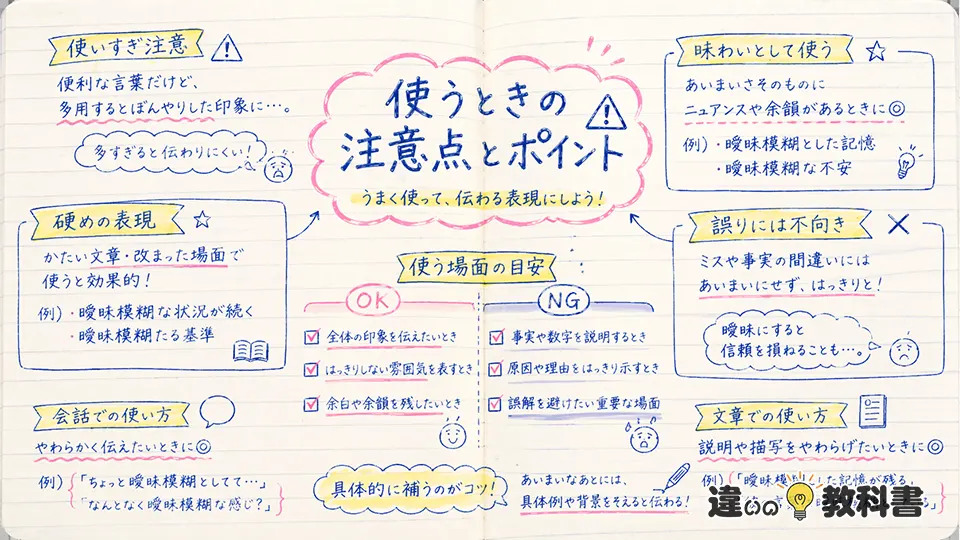 使うときの
注意点とポイント
うまく使って、伝わる表現にしよう!
使いすぎ注意
便利な言葉だけど、
多用するとぼんやりした印象に…。
多すぎると伝わりにくい!
味わいとして使う
あいまいさそのものに
ニュアンスや余韻があるときに◎
例)・曖昧模糊とした記憶
・曖昧模糊な不安
硬めの表現
かたい文章・改まった場面で
使うと効果的!
例)・曖昧模糊な状況が続く
・曖昧模糊たる基準
誤りには不向き
ミスや事実の間違いには
あいまいにせず、はっきりと!
曖昧にすると
信頼を損ねることも…。
使う場面の目安
OK
全体の印象を伝えたいとき
はっきりしない雰囲気を表すとき
余白や余韻を残したいとき
NG
事実や数字を説明するとき
原因や理由をはっきり示すとき
誤解を避けたい重要な場面
会話での使い方
やわらかく伝えたいときに◎
例)「ちょっと曖昧模糊としてて…」
「なんとなく曖昧模糊な感じ?」
具体的に補うのがコツ!
あいまいなあとには、
具体例や背景をそえると伝わる!
文章での使い方
説明や描写をやわらげたいときに◎
例)「曖昧模 した記憶が残る。
違いの教科書